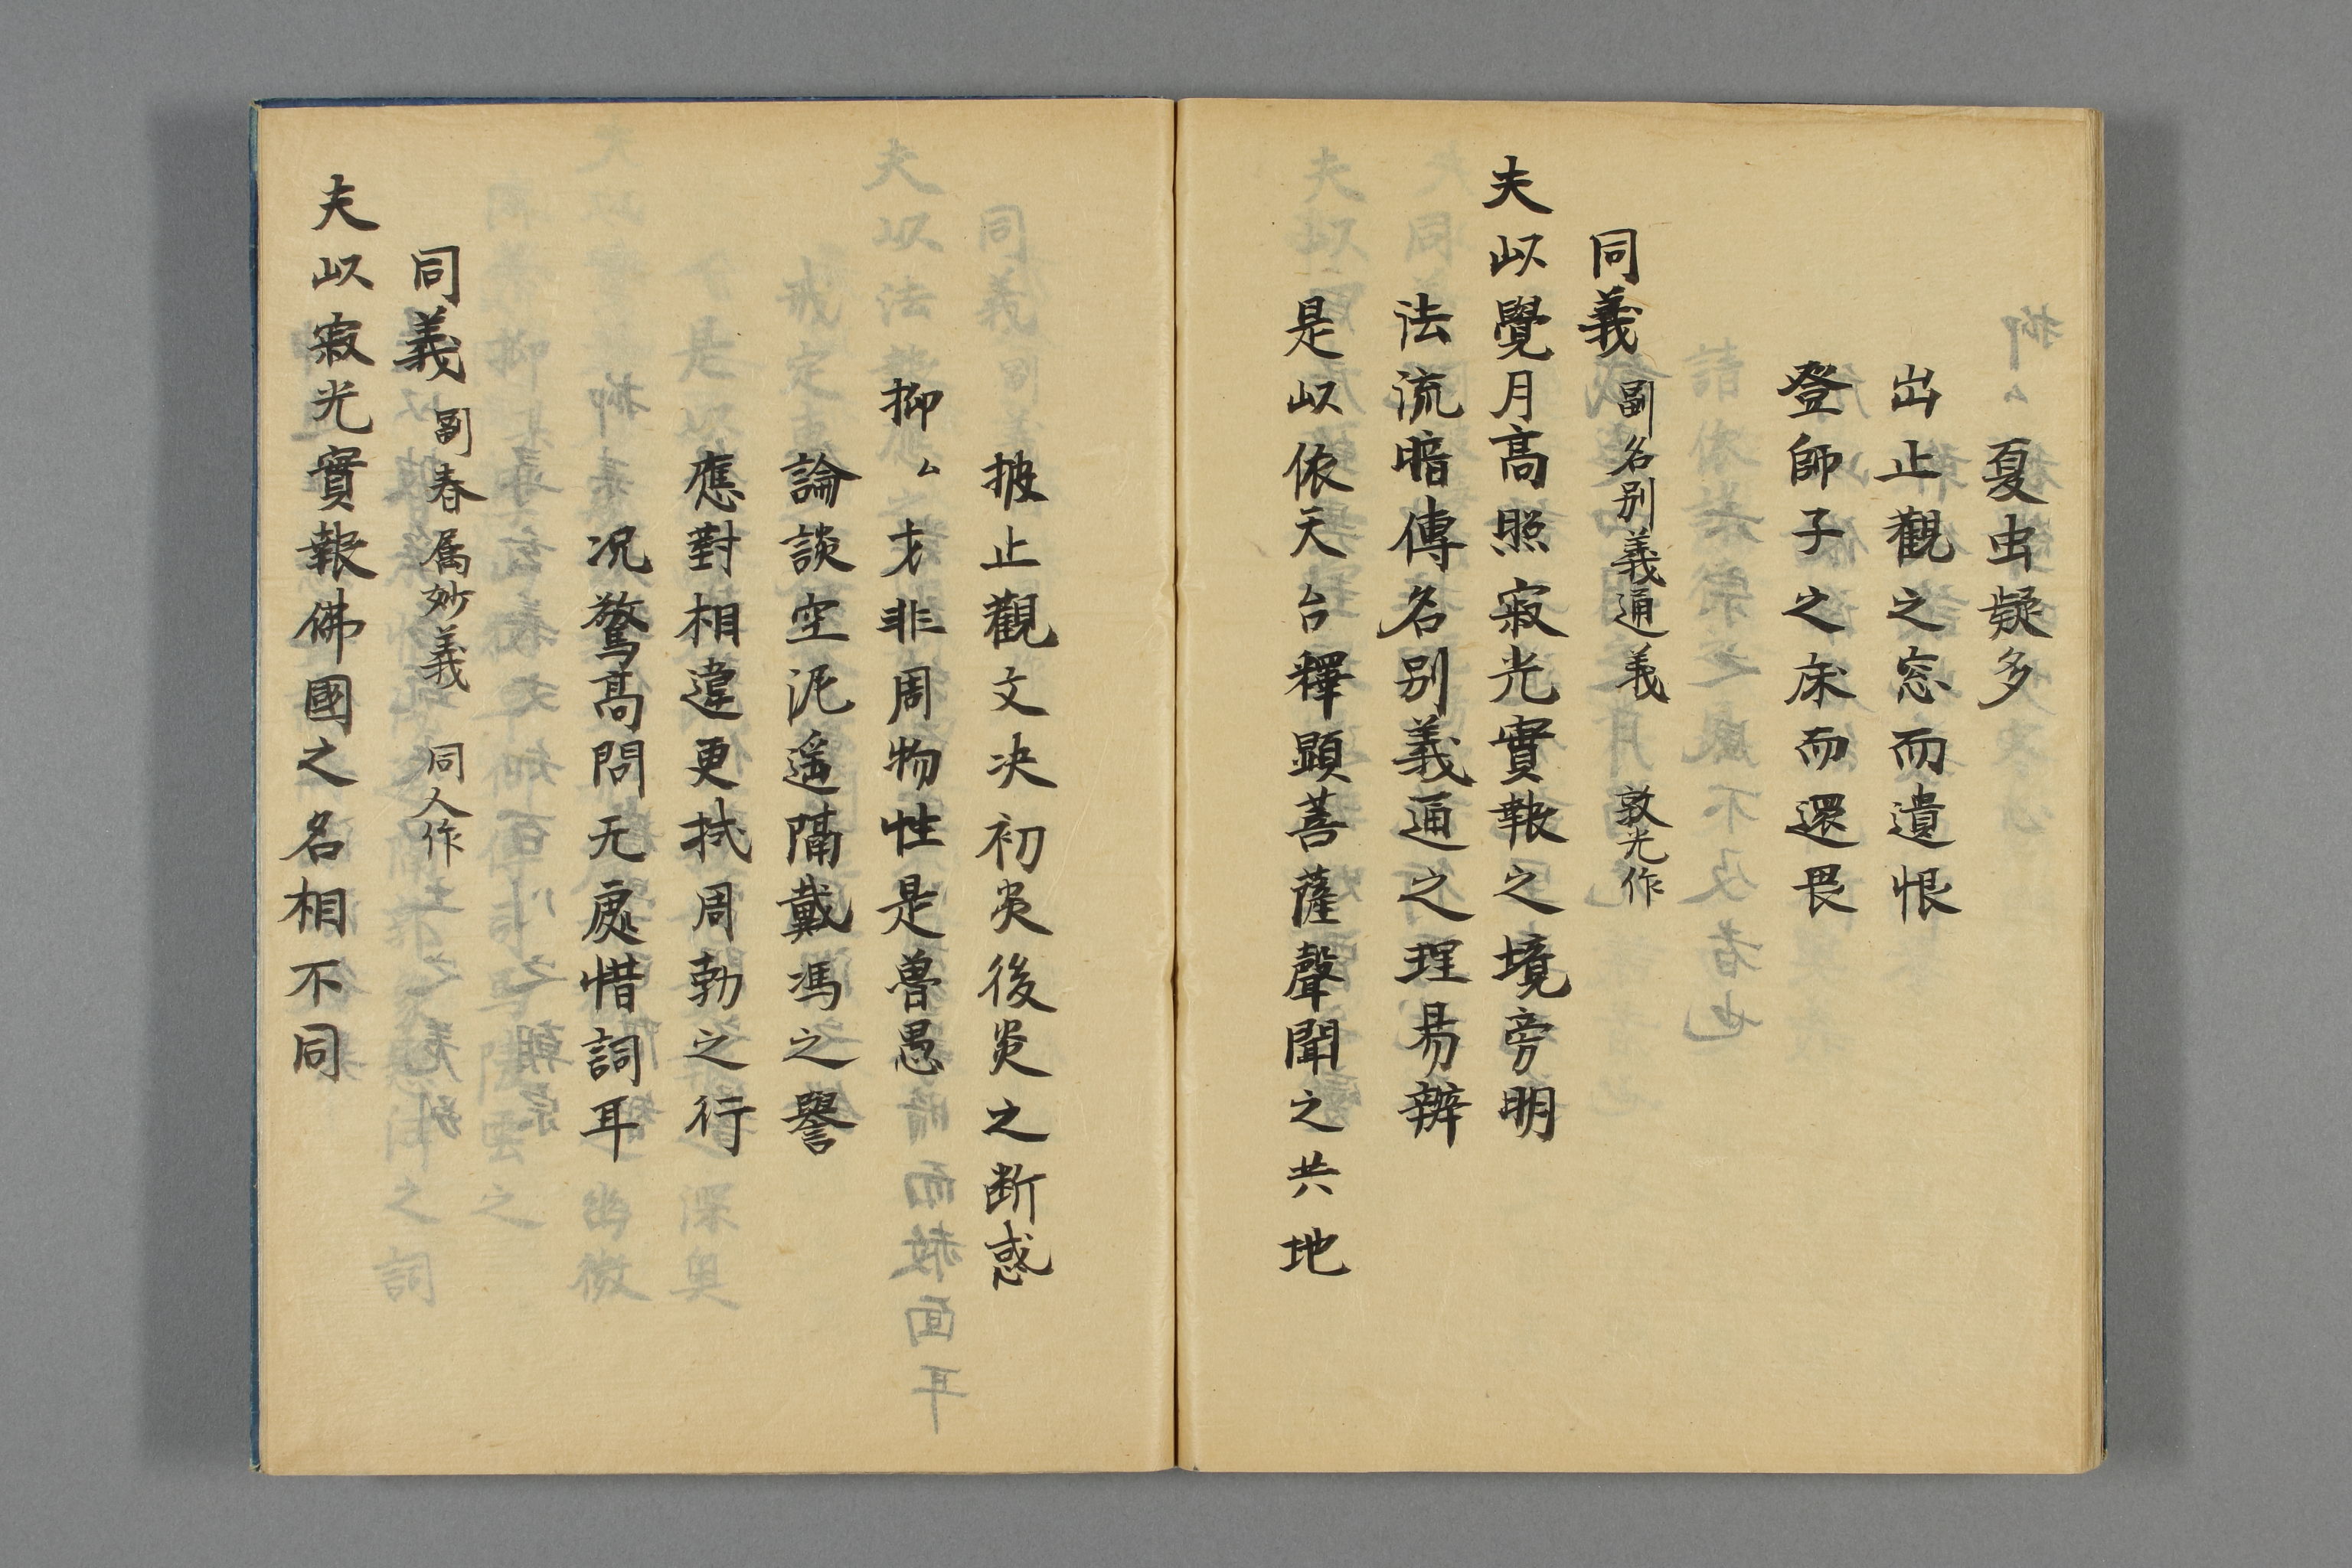 夏虫疑多
出止觀之窓而遺恨
登師子之床而還畏
同義 副名別義通義 敦光作
夫以覺月高照寂光實報之境旁明
法流暗傳名別義通之理易辨
是以依天台釋顕菩薩聲聞之共地
披止觀文決初炎後炎之断惑
抑ム才非周物性是魯愚
論談空泥遥隔戴馮之譽
應對相違更拭周勃之行
况驚高問无處惜詞耳
同義 副春属妙義 同人作
夫以寂光實報佛國之名相不同